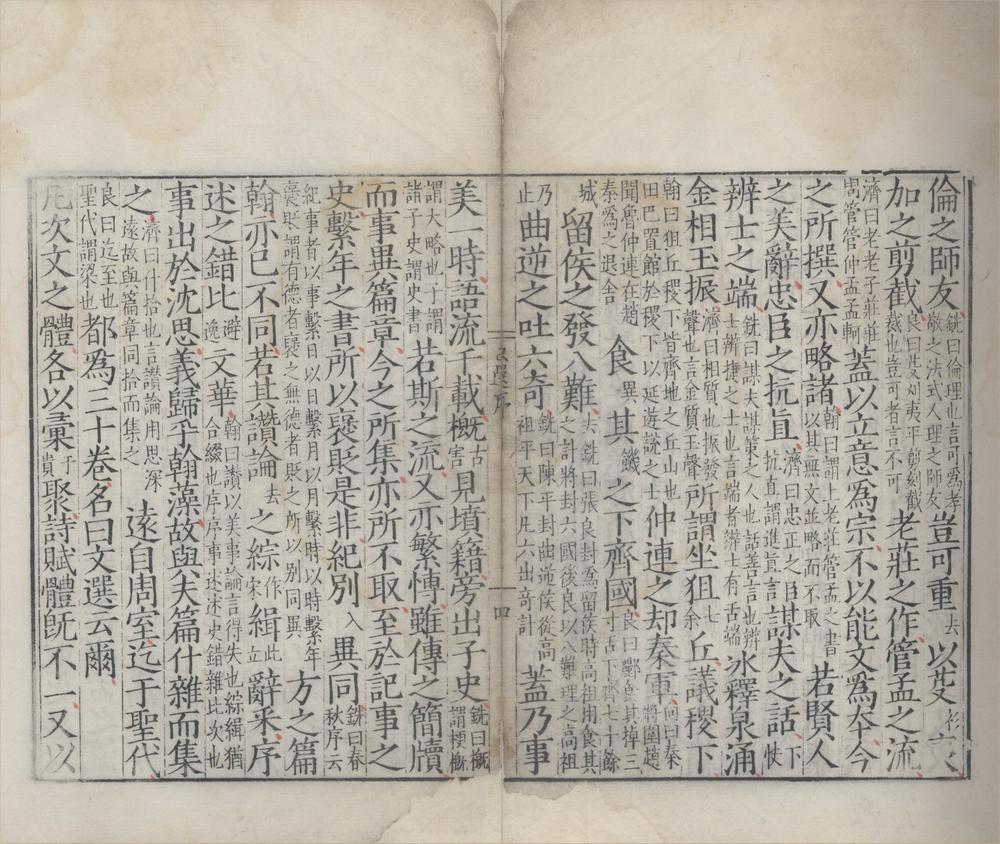 倫之師友銑曰倫理也言可爲孝敬之法式人理之師友豈可重去以芟衫
加之剪截良曰芟刈夷平剪刻截裁也豈可者言不可老莊之作管孟之流
濟曰老老子莊莊周管管仲孟孟軻蓋以立意爲宗不以能文爲夲今
之所撰又亦略諸翰曰謂上老莊管孟之書以其無文並略而不取若賢人
之美辭忠臣之抗直濟曰忠正之臣抗直謂進直言謀夫之話下快
辨士之端銑曰謀夫謀策之人也話善言也辨士辨捷之士也言端者辨士有舌端冰釋泉涌
金相玉振濟曰相質也振發聲也言金質玉聲所謂坐狙七余丘議稷下
翰曰狙丘稷下皆齊地之丘山也田巴置館於稷下以延遊談之士仲連之却秦軍向曰秦將圍趙
聞魯仲連在趙秦爲之退舍食異其饑之下齊國良曰酈食其掉三寸舌下齊七十餘
城留侯之發八難去銑曰張良封爲留侯時高祖用食其之計將封六國後良以八難理之高祖
乃止曲逆之吐六奇銑曰陳平封曲逆侯從高祖平天下凡六出奇計蓋乃事
文選序 一四
美一時語流千載概古害見墳籍旁出子史銑曰概謂梗概
謂大略也于謂諸子史謂史書若斯之流又亦繁愽雖傳之簡牘
而事異篇章今之所集亦所不取至於記事之
史繫年之書所以襃貶是非紀別入異同銑曰春秋序云
紀事者以事繫日以日繫月以月繫時以時繫年襃貶謂有德者襃之無德者貶之所以別同異方之篇
翰亦已不同若其讚論去之綜作宋緝此立辭采序
述之錯比避逸文華翰曰讚以美事論言得失也綜緝猶合綴也序序事述述史錯雜比次也
事出於沈思義歸乎翰藻故與夫篇什雜而集
之濟曰什拾也言讚論用思深遠故與篇章同拾而集之遠自周室迄于聖代
良曰迄至也聖代謂梁也都爲三十卷名曰文選云爾
凡次文之體各以彙于貴聚詩賦體旣不一又以